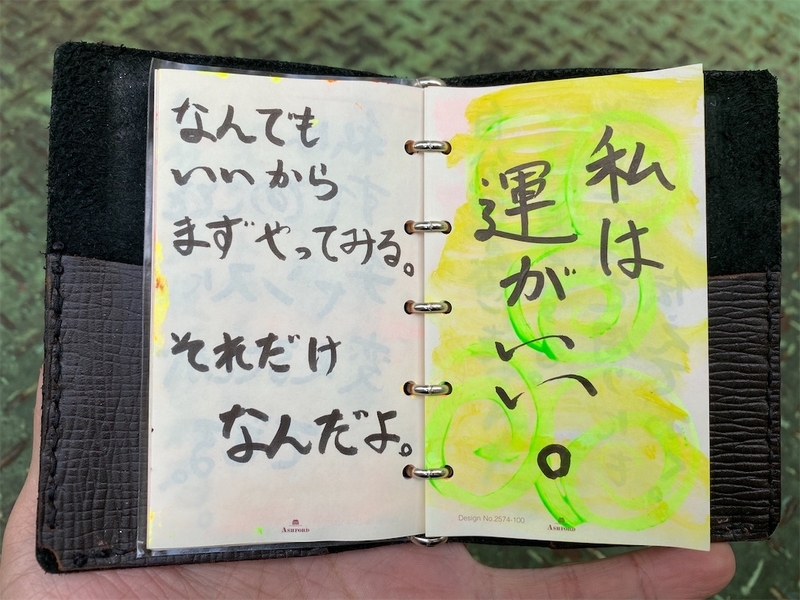 なんでも
いいから
まずやってみる。
それだけ
なんだよ。
ASHFORD
私は
運がいい。
Design No.2574-100
ASHFORD